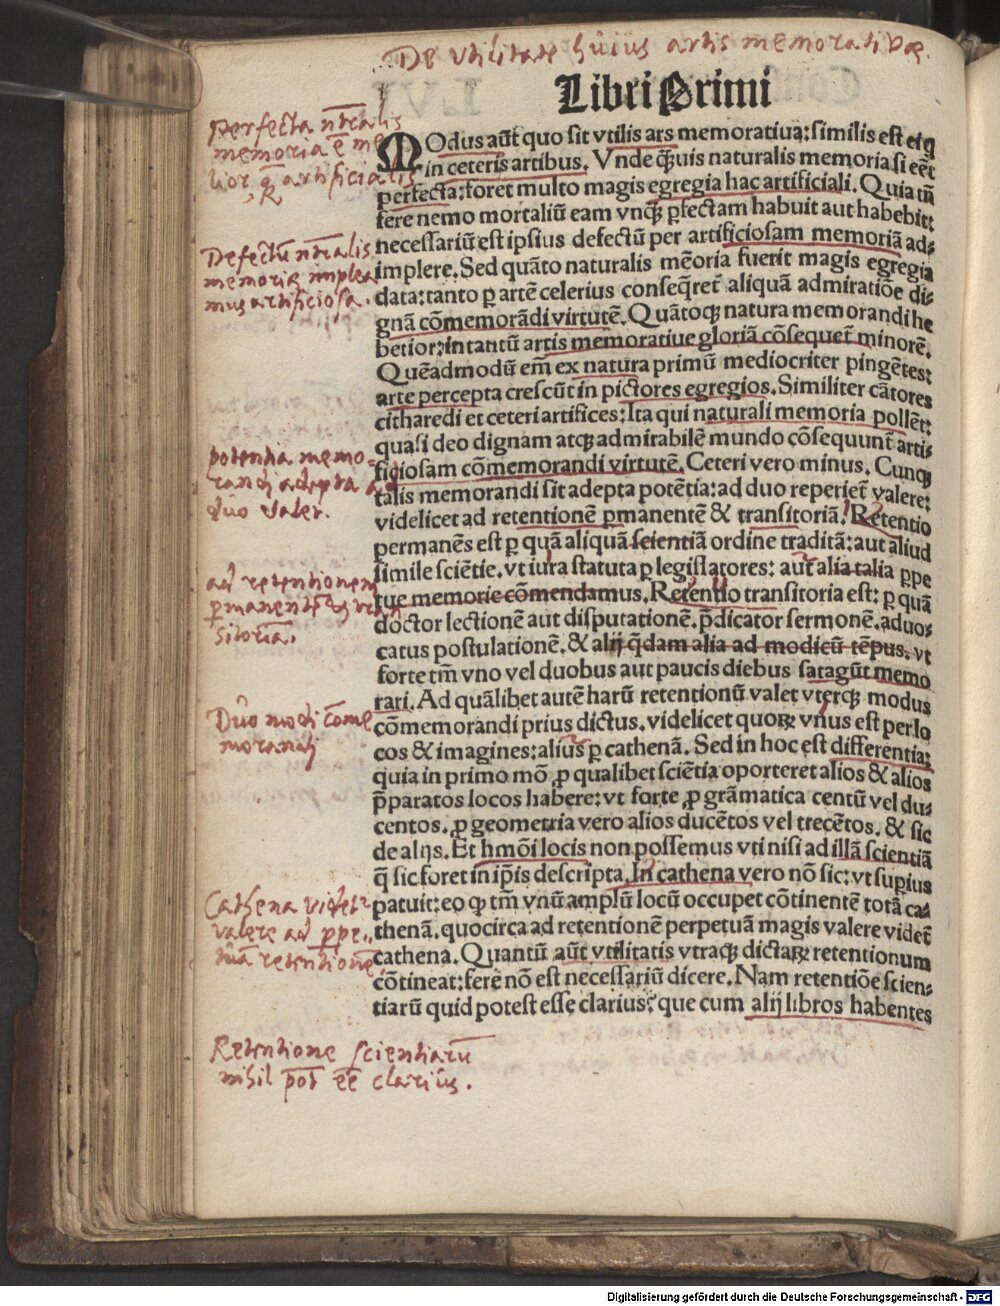 De Vtilitate huius artis memoratiuæ.
Libri Primi
Perfecta nr̄alis
memoria ē me
lior q̄ artificialis
MOdus aūt quo sit vtilis ars memoratiua: similis est ei q
in ceteris artibus. Vnde q̄uis naturalis memoria si eēt
perfecta: foret multo magis egregia hac artificiali. Quia tn̄
fere nemo mortaliū eam vnq̄ ꝑfectam habuit aut habebit:
Defectū nr̄alis
memoriæ implea
mus artificiosa.
necessariū est ipsius defectū per artificiosam memoriā ad⸗
implere. Sed quāto naturalis mēoria fuerit magis egregia
data: tanto ꝑ artē celerius conseq̄ret̄ aliquā admiratiōe di⸗
gnā cōmemorādi virtutē. Quātoqꝫ natura memorandi he
betior: in tantū artis memoratiue gloriā cōsequet̄ minorē.
Quēadmodū em̄ ex natura primū mediocriter pingētes:
arte percepta crescūt in pictores egregios. Similiter cātores
citharedi et ceteri artifices: Ita qui naturali memoria pollēt:
quasi deo dignam atqꝫ admirabilē mundo cōsequunt̄ arti⸗
potentia memo⸗
randi adepta ad
duo valet.
ficiosam cōmemorandi virtutē. Ceteri vero minus. Cunqꝫ
talis memorandi sit adepta potētia: ad duo reperiet̄ valere:
videlicet ad retentionē ꝑmanentē & transitoriā. Retentio
permanēs est ꝑ quā aliquā scientiā ordine traditā: aut aliud
ad retentionem
ꝑmanentē & tran
sitoriā.
simile sciētie. vt iura statuta ꝑ legislatores: aut alia talia ꝑpe
tue memorie cōmendamus. Retentio transitoria est: ꝑ quā
doctor lectionē aut disputationē. p̄dicator sermonē. aduo⸗
catus postulationē. & alij q̄dam alia ad modicū tēpus. vt
forte tm̄ vno vel duobus aut paucis diebus satagūt memo
rari. Ad quālibet autē harū retentionū valet vterqꝫ modus
Duo modi cōme
morandi
cōmemorandi prius dictus. videlicet quoꝝ vnus est per lo
cos & imagines: alius ꝑ cathenā. Sed in hoc est differentia:
quia in primo mō ꝓ qualibet sciētia oporteret alios & alios
p̄paratos locos habere: vt forte ꝓ grāmatica centū vel du⸗
centos. ꝓ geometria vero alios ducētos vel trecētos. & sic
de alijs. Et hmōi locis non possemus vti nisi ad illā scientiā
q̄ sic foret in ip̄is descripta. In cathena vero nō sic: vt supius
Cathena videt̄
valere ad ꝑpe⸗
tuā retentionē.
patuit: eo qꝫ tm̄ vnū amplū locū occupet cōtinentē totā ca⸗
thenā. quocirca ad retentionē perpetuā magis valere videt̄
cathena. Quantū aūt vtilitatis vtraqꝫ dictaꝝ retentionum
cōtineat: fere nō est necessariū dicere. Nam retentiōe scien⸗
tiarū quid potest esse clarius: que cum alij libros habentes
Retentione scientiarū
nihil pōt eē clarius.
Digitalisierung gefördert durch die Deutsche Forschungsgemeinschaft - DFG